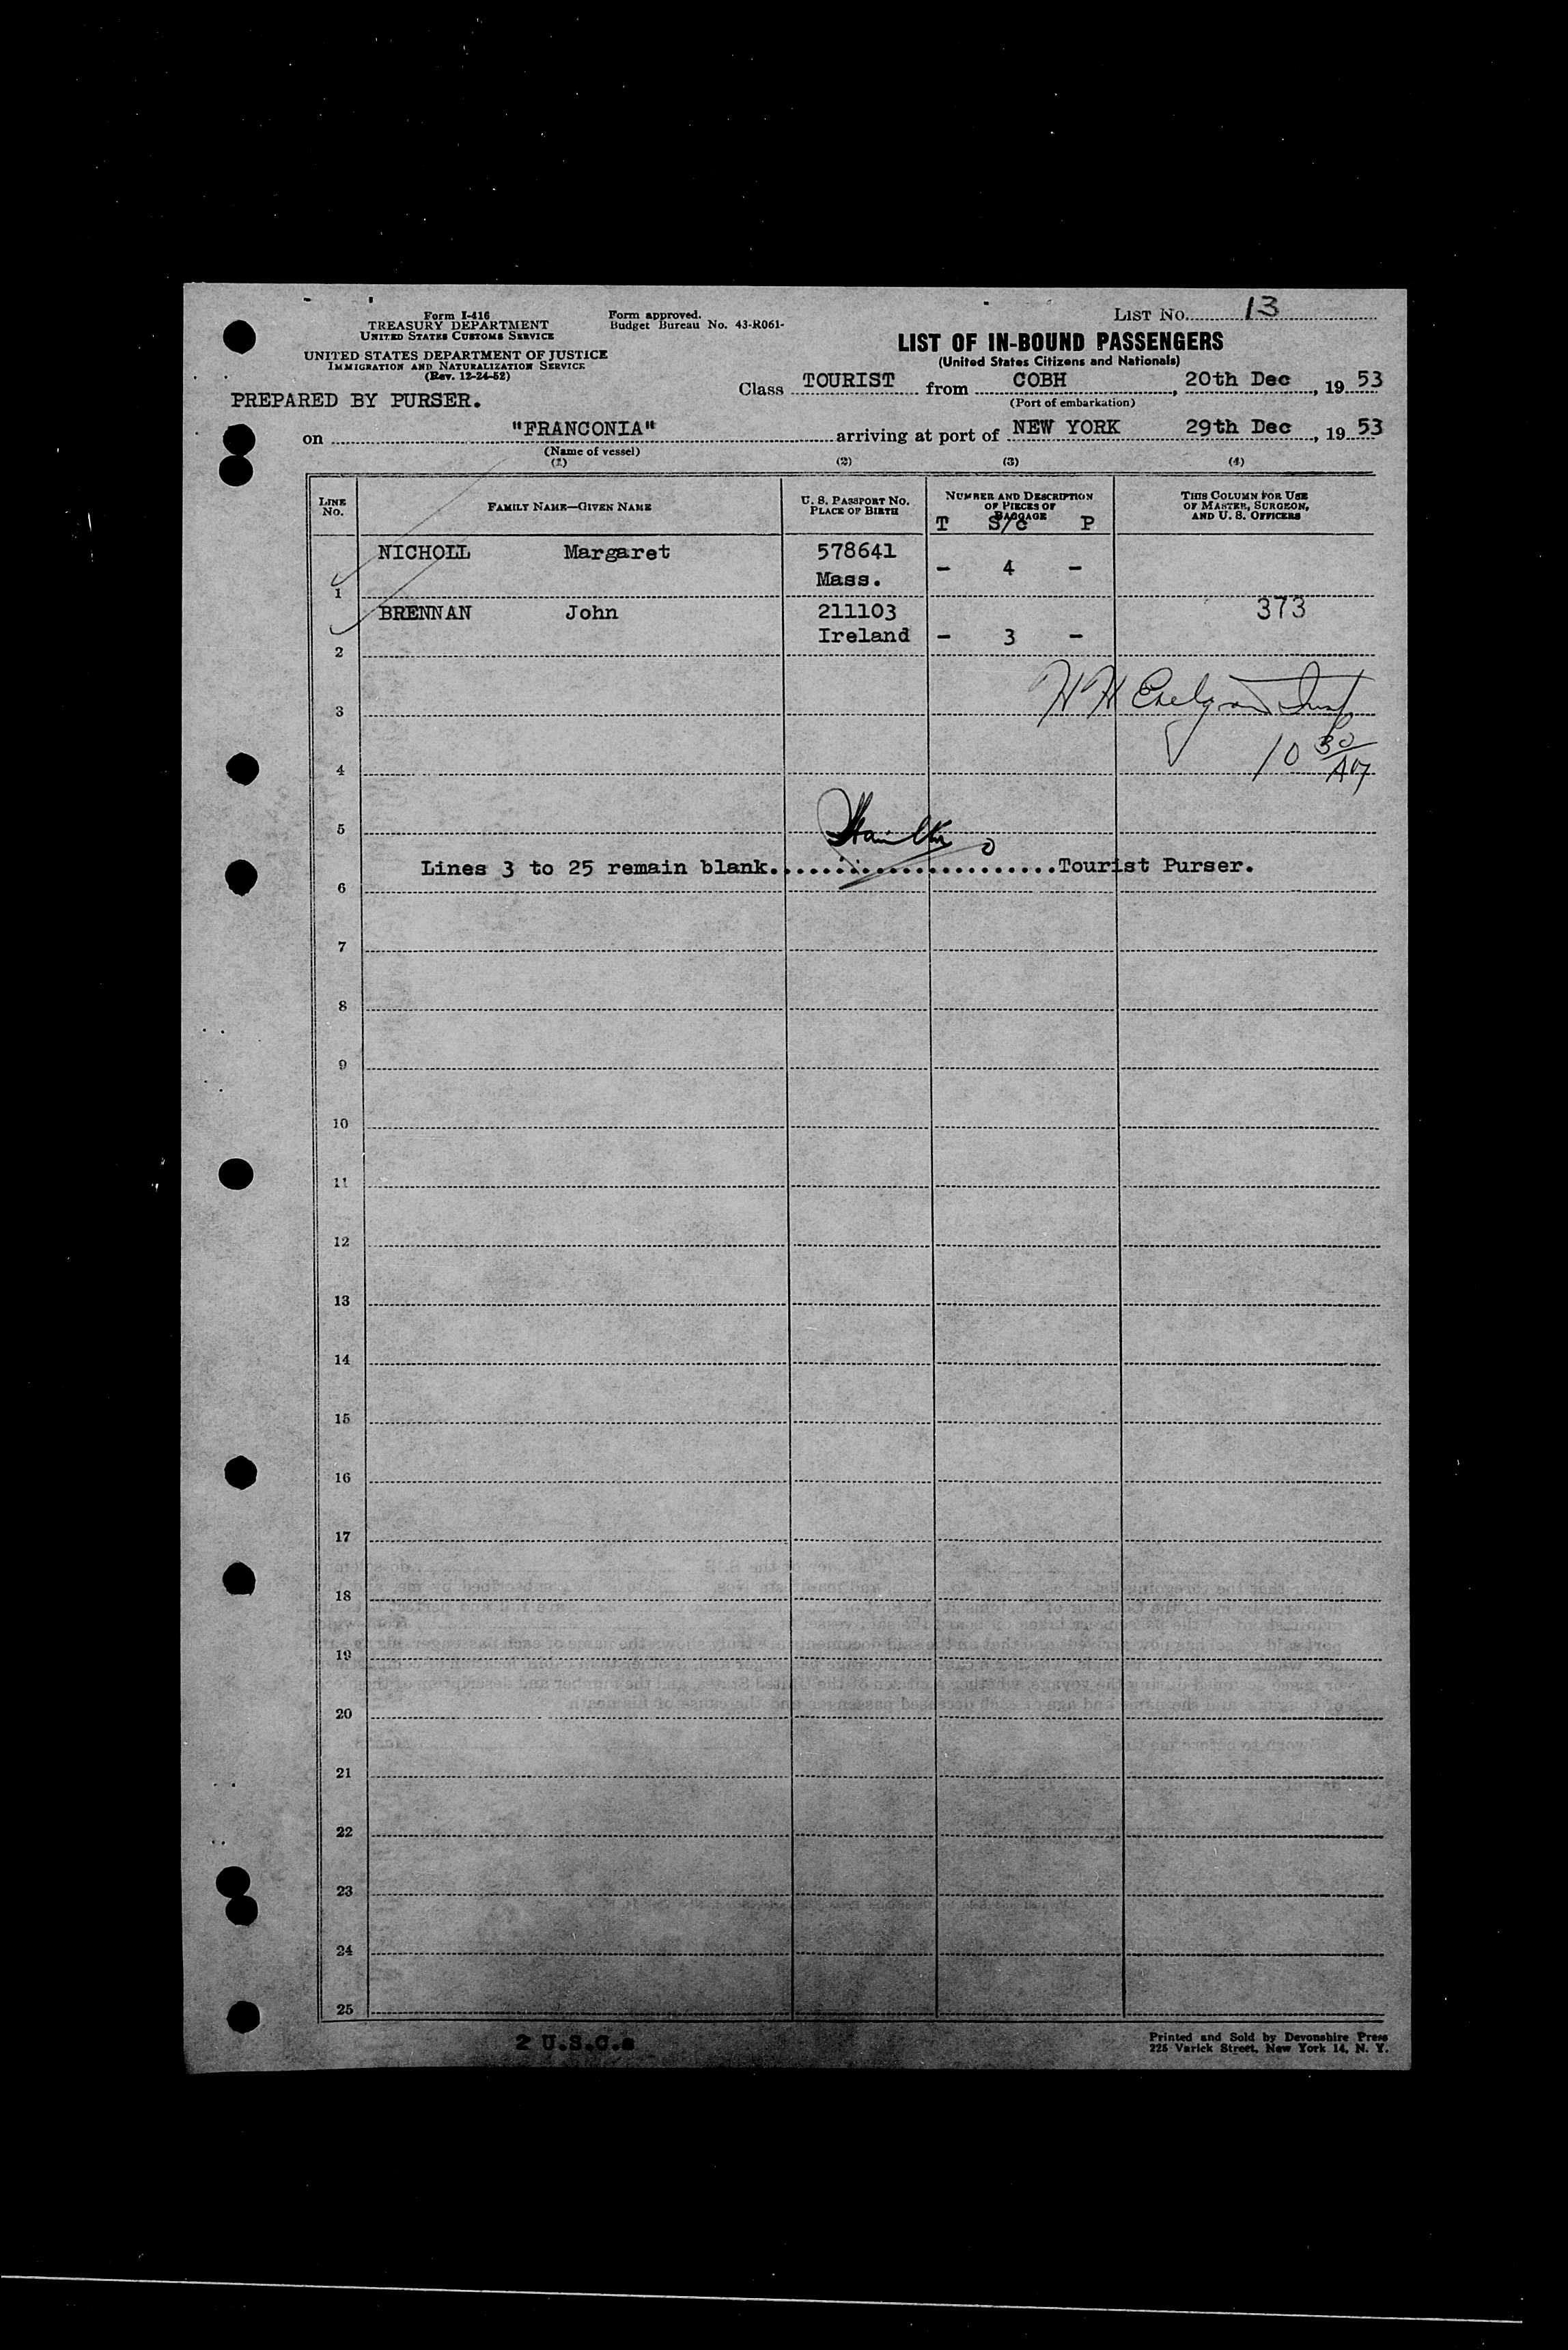 Form I-416
TREASURY DEPARTMENT
UNITED STATES CUSTOMS SERVICE
UNITED STATES DEPARTMENT OF JUSTICE
IMMIGRATION AND NATURALIZATION SERVICE
(Rev. 12-24-52)
PREPARED BY PURSER.
Form approved.
Budget Bureau No. 43-R061-
LIST No. 13
LIST OF IN-BOUND PASSENGERS
(United States Citizens and Nationals)
Class TOURIST from COBH, 20th Dec, 19 53
(Port of embarkation)
on "FRANCONIA" arriving at port of NEW YORK 29th Dec, 19 53
(Name of vessel)
(1) (2) (3) (4)
LINE No. FAMILY NAME—GIVEN NAME U. S. PASSPORT NO. PLACE OF BIRTH NUMBER AND DESCRIPTION OF PIECES OF BAGGAGE THIS COLUMN FOR USE OF MASTER, SURGEON, AND U. S. OFFICERS
T S/C P
NICHOLL Margaret 578641
Mass. - 4 -
1
BRENNAN John 211103 373
Ireland - 3 -
2
3 H H
4 10 30/AM
5
Lines 3 to 25 remain blank. Tourist Purser.
6
7
8
9
10
11
12
13
14
15
16
17
18
19
20
21
22
23
24
25
2 U.S.C.s
Printed and Sold by Devonshire Press
225 Varick Street, New York 14, N. Y.